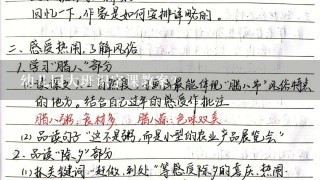 回忆一下，作家是如何安排详略的。
二、感受热闹，了解风俗
1.学习“腊八”部分
的地方。结合自己过年的感受作批注
腊八粥：食材多 腊八蒜：色味双美
(2)品读句子“这不是粥，而是小型的农业产品展览会”
2.品读“除夕”部分
(1)抓关键词“赶做、到处”等感受除夕的喜庆、热闹